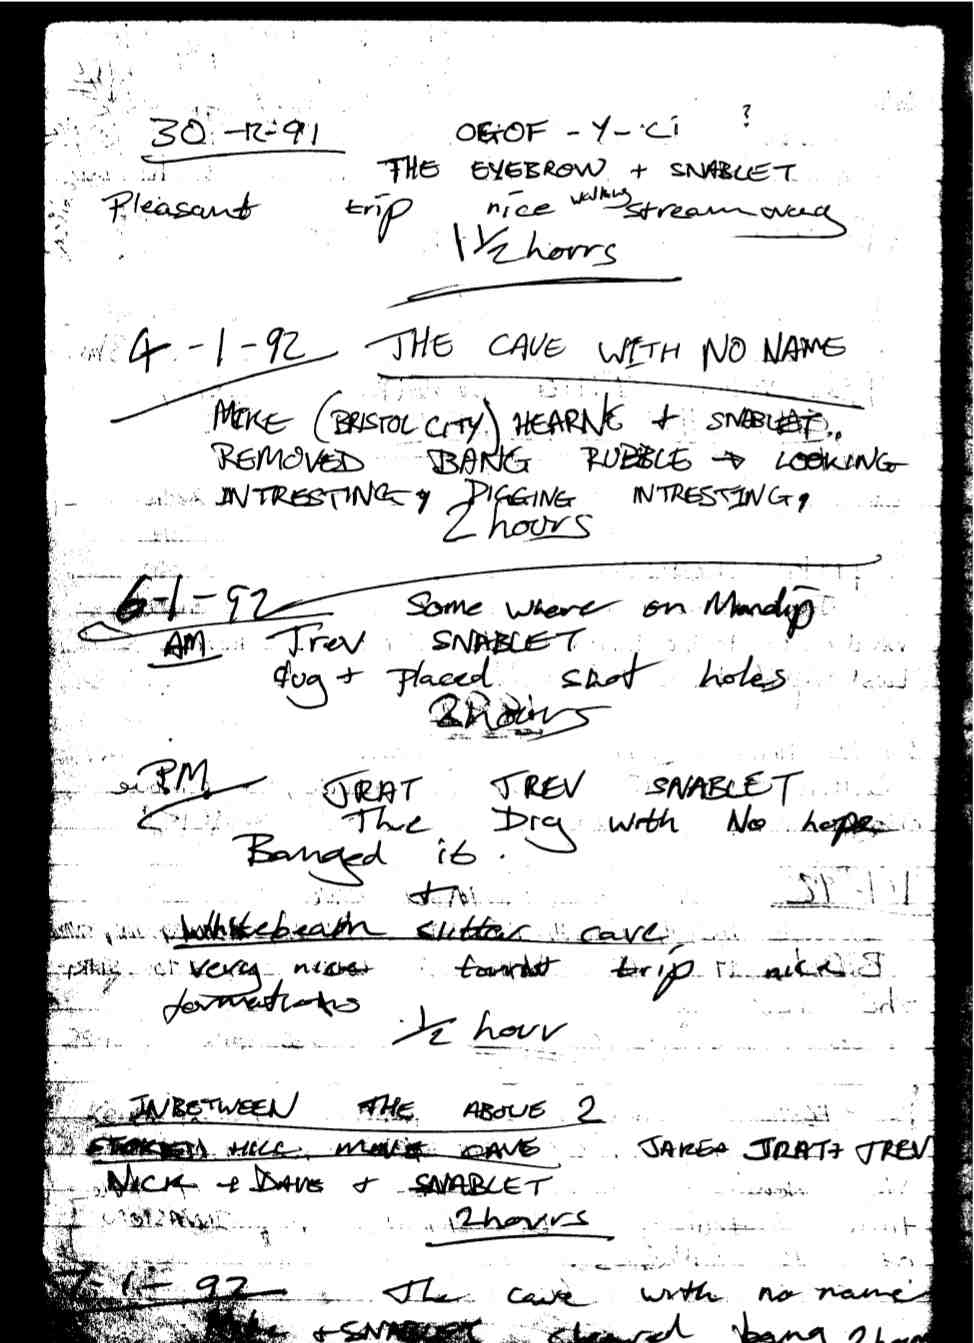 30-12-91 OGOF-Y-Ci ?
THE EYEBROW + SNABLET
Pleasant trip nice walking streamway
1 1/2 hours
4-1-92 THE CAVE WITH NO NAME
MIKE (BRISTOL CITY) HEARNE + SNABLET..
REMOVED BANG RUBBLE → LOOKING
INTRESTING, DIGGING INTRESTING,
2 hours
6-1-92 Some where on Mendip
AM Trev SNABLET
dug + placed shot holes
2 hours
PM JRAT TREV SNABLET
The Dig with No hope
Banged it.
+
Whitebeam slitter cave
very nice tourist trip nice
formations
1/2 hour
INBETWEEN THE ABOVE 2
HILL MINE CAVE JAKE+ JRAT+ TREV
NICK + DAVE + SNABLET
2 hours
7-1-92 The cave with no name
+ SNABLET cleared bang